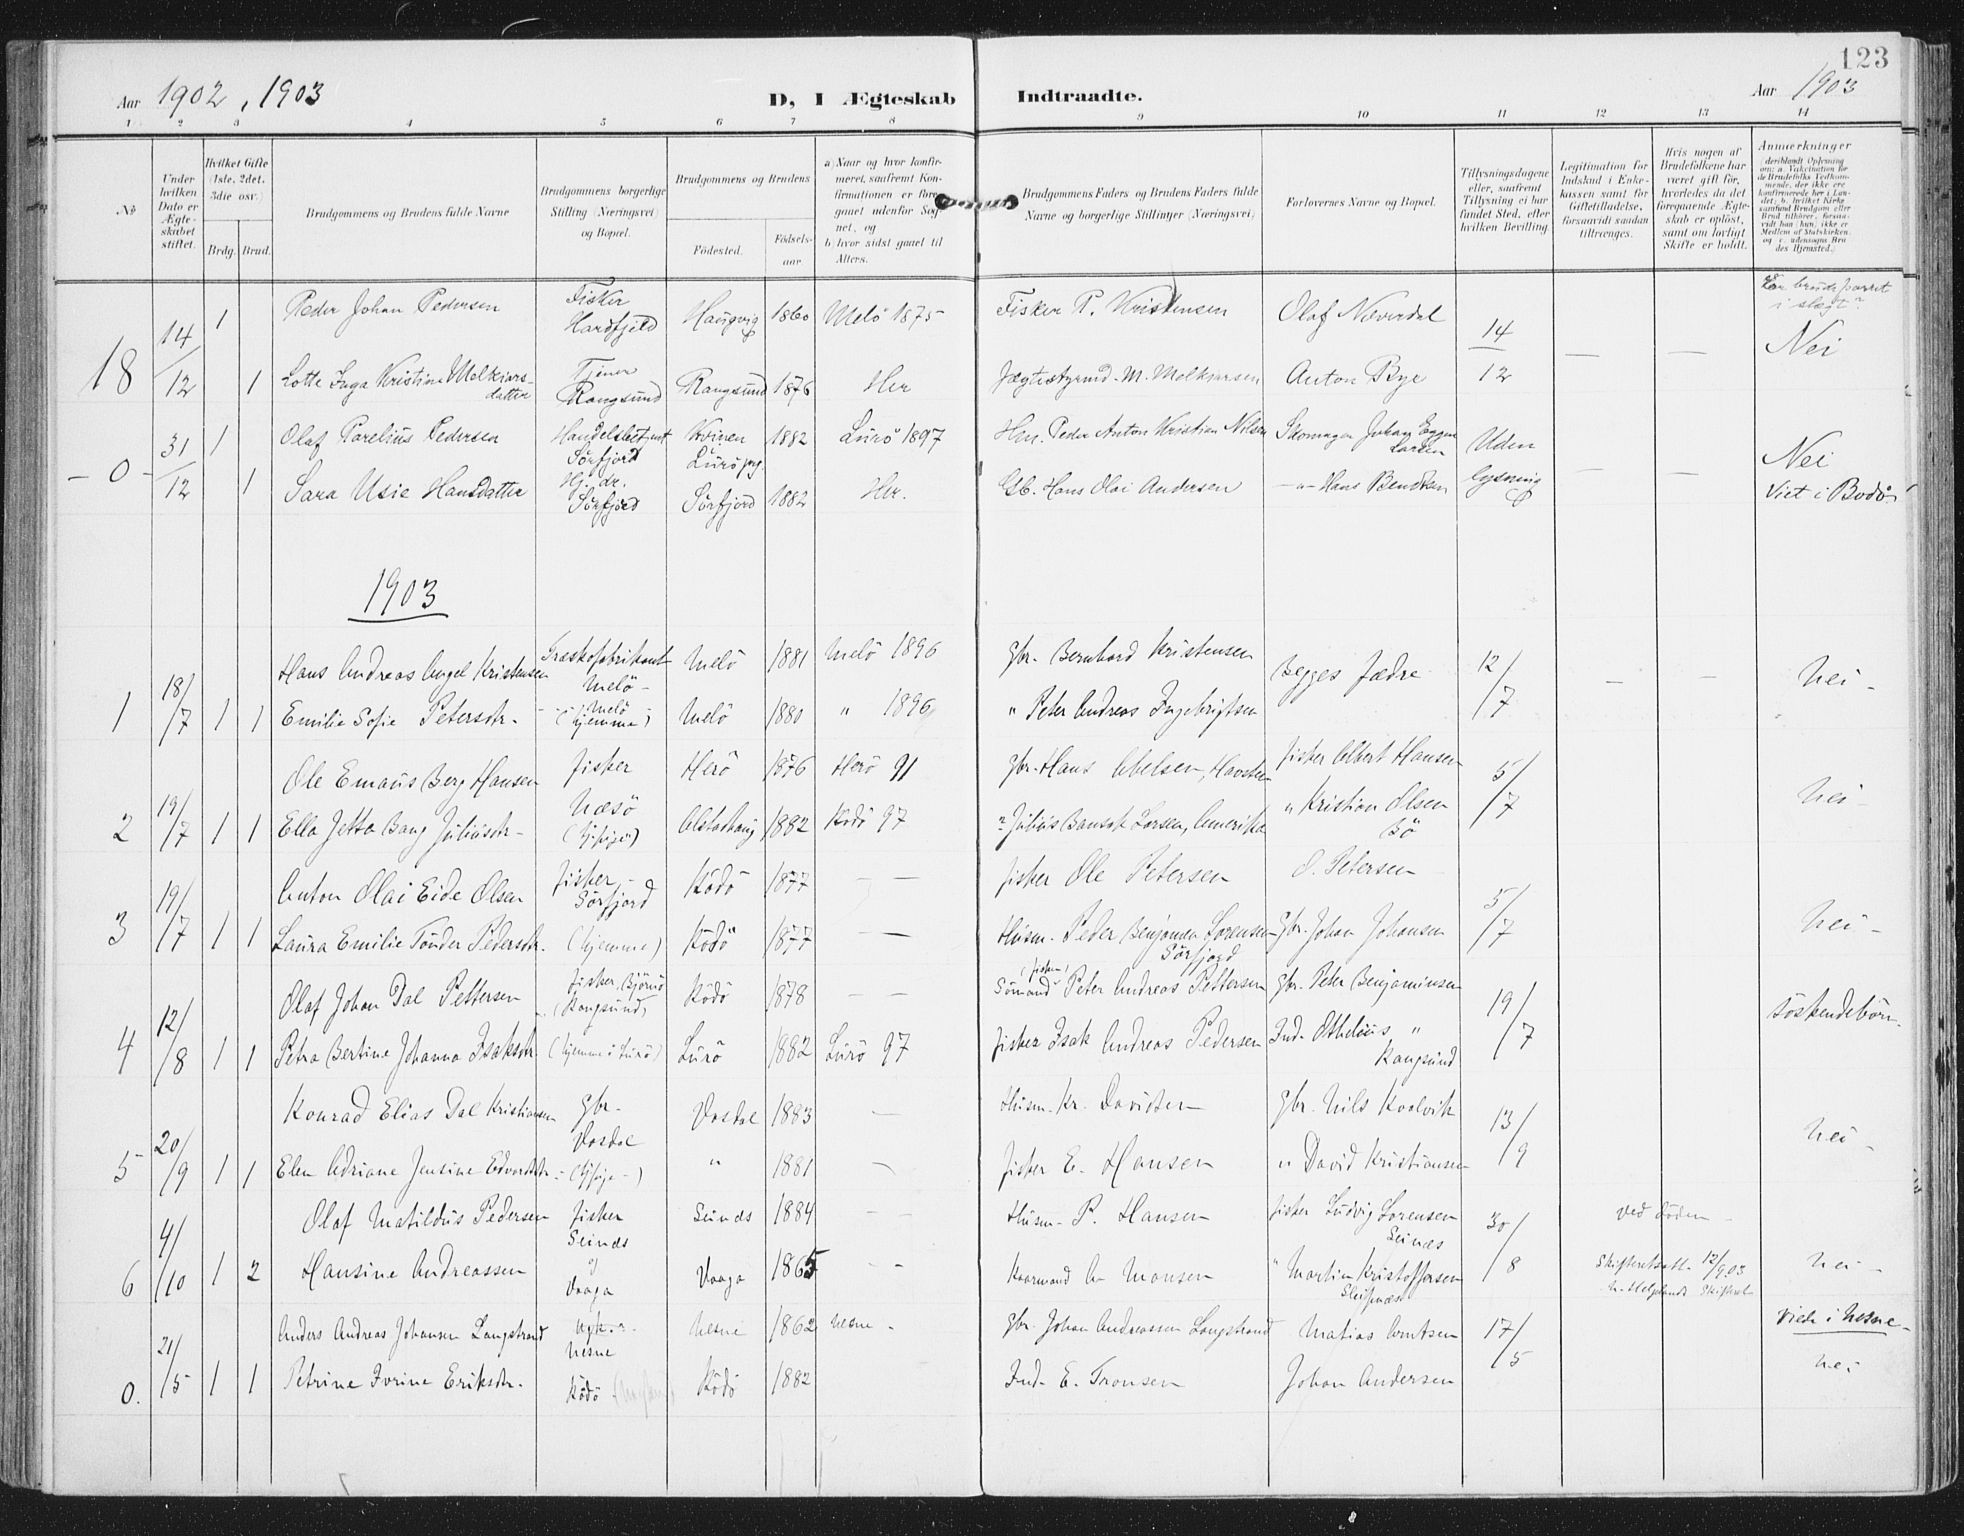 123
Aar 1902, 1903 D, I Ægteskab Indtraadte. Aar 1903
1 2 3 4 5 6 7 8 9 10 11 12 13 14
№
Under hvilken Dato er Ægteskabet stiftet.
Hvilket Gifte (1ste, 2det, 3die osv.)
Brdg. Brud.
Brudgommens og Brudens fulde Navne
Brudgommens borgerlige Stilling (Næringsvei) og Bopæl.
Brudgommens og Brudens
Fødested. Fødselsaar.
a) Naar og hvor konfirmeret, saafremt Konfirmationen er foregaaet udenfor Sognet, og
b) hvor sidst gaaet til Alters.
Brudgommens Faders og Brudens Faders fulde Navne og borgerlige Stillinger (Næringsvei)
Forlovernes Navne og Bopæl.
Tillysningsdagene eller, saafremt Tillysning ei har fundet Sted, efter hvilken Bevilling.
Legitimation for Indskud i Enkekassen samt for Giftetilladelse, forsaavidt saadan tiltrænges.
Hvis nogen af Brudefolkene har været gift før, hvorledes da det foregaaende Ægteskab er opløst, samt om lovligt Skifte er holdt.
Anmerkninger
Er brudeparret i slægt?
18 14/12 1 Peder Johan Pedersen Fisker Hardfjeld Haugvig 1860 Melö 1875 Fisker P. Kristensen Olaf Næverdal 14/12 — — Nei
1 Lotte Inga Kristine Melkiorsdatter Tjener Rangsund Rangsund 1876 Her Jægtestyrmd. M. Melkiorsen Anton Bye
-0- 31/12 1 Olaf Parelius Pedersen Handelsbetjent Sörfjord Kvinen Lurö prg. 1882 Lurö 1897 Hm. Peder Anton Kristian Nilsen Skomager Johan Eggen Larsen Uden lysning — — Nei
1 Sara Usie Hansdatter Hj. dr. Sörfjord Sörfjord 1882 Her. Gb. Hans Olai Andersen -"- Hans Bendksen Viet i Bodö
1903
1 18/7 1 1 Hans Andreas Angel Kristensen Træskofabrikant Melö Melö 1881 Melö 1896 Gbr. Bernhard Kristensen Begges fædre 12/7 — — Nei -
Emilie Sofie Petersdtr. - Melö (hjemme) Melö 1880 " 1896 " Peter Andreas Ingebrigtsen
2 19/7 1 1 Ole Emaus Berg Hansen Fisker Næsö Herö 1876 Herö 91 Gbr. Hans Abelsen, fisker Albert Hansen 5/7 Nei -
Ella Jetta Bang Juliusdtr - Alstadhaug 1882 Rödö 97 " Julius Larsen, Amerika " Kristian Olsen Bö
3 19/7 1 1 Anton Olai Eide Olsen Fisker - Sörfjord Rödö 1877 — — Fisker Ole Petersen O. Petersen 5/7 Nei -
Laura Emilie Tönder Pedersdtr. (hjemme) Rödö 1877 — — Husm. Peder Benjamin Lorensen Sörfjord Gbr. Johan Johansen
4 12/8 1 1 Olaf Johan Dal Pettersen Fisker, (Rangsund) Rödö 1878 — — (fisker) Sömand Peter Andreas Pettersen Gbr. Peter Benjaminsen 19/7 Söskendebörn.
Petra Bertine Johanna Isaksdtr (hjemme i Lurö) Lurö 1882 Lurö 97 Fisker Isak Andreas Pedersen Ind. Othelius " Rangsund
5 20/9 1 1 Konrad Elias Dal Kristiansen Gbr. Vasdal Vasdal 1883 — Husm. Kr. Davidsen Gbr. Nils Kvalvik 13/9 Nei -
Elen Adriane Jensine Edvardsdtr - " 1881 — Fisker E. Hansen " David Kristiansen
6 4/10 1 2 Olaf Matildus Pedersen Fisker Selnæs Selnæs 1884 — — Husm. P. Hansen Fisker Ludvig Lorensen Selnæs 30/8 Ved döden - Nei -
Hansine Andreassen Vaaga Vaaga 1865 - - Kaarmand A. Monsen " Martin Kristoffersen Skifteretsatt. 12/9 03
0. 21/5 1 1 Anders Andreas Johansen Langstrand Nesne Nesne 1862 Nesne - Gbr. Johan Andreassen Langstrand Matias Arntsen 17/5 Viede i Nesne -
Petrine Ivrine Eriksdtr. Rödö Rödö 1882 Ind. E. Tronsen Johan Andersen Nei